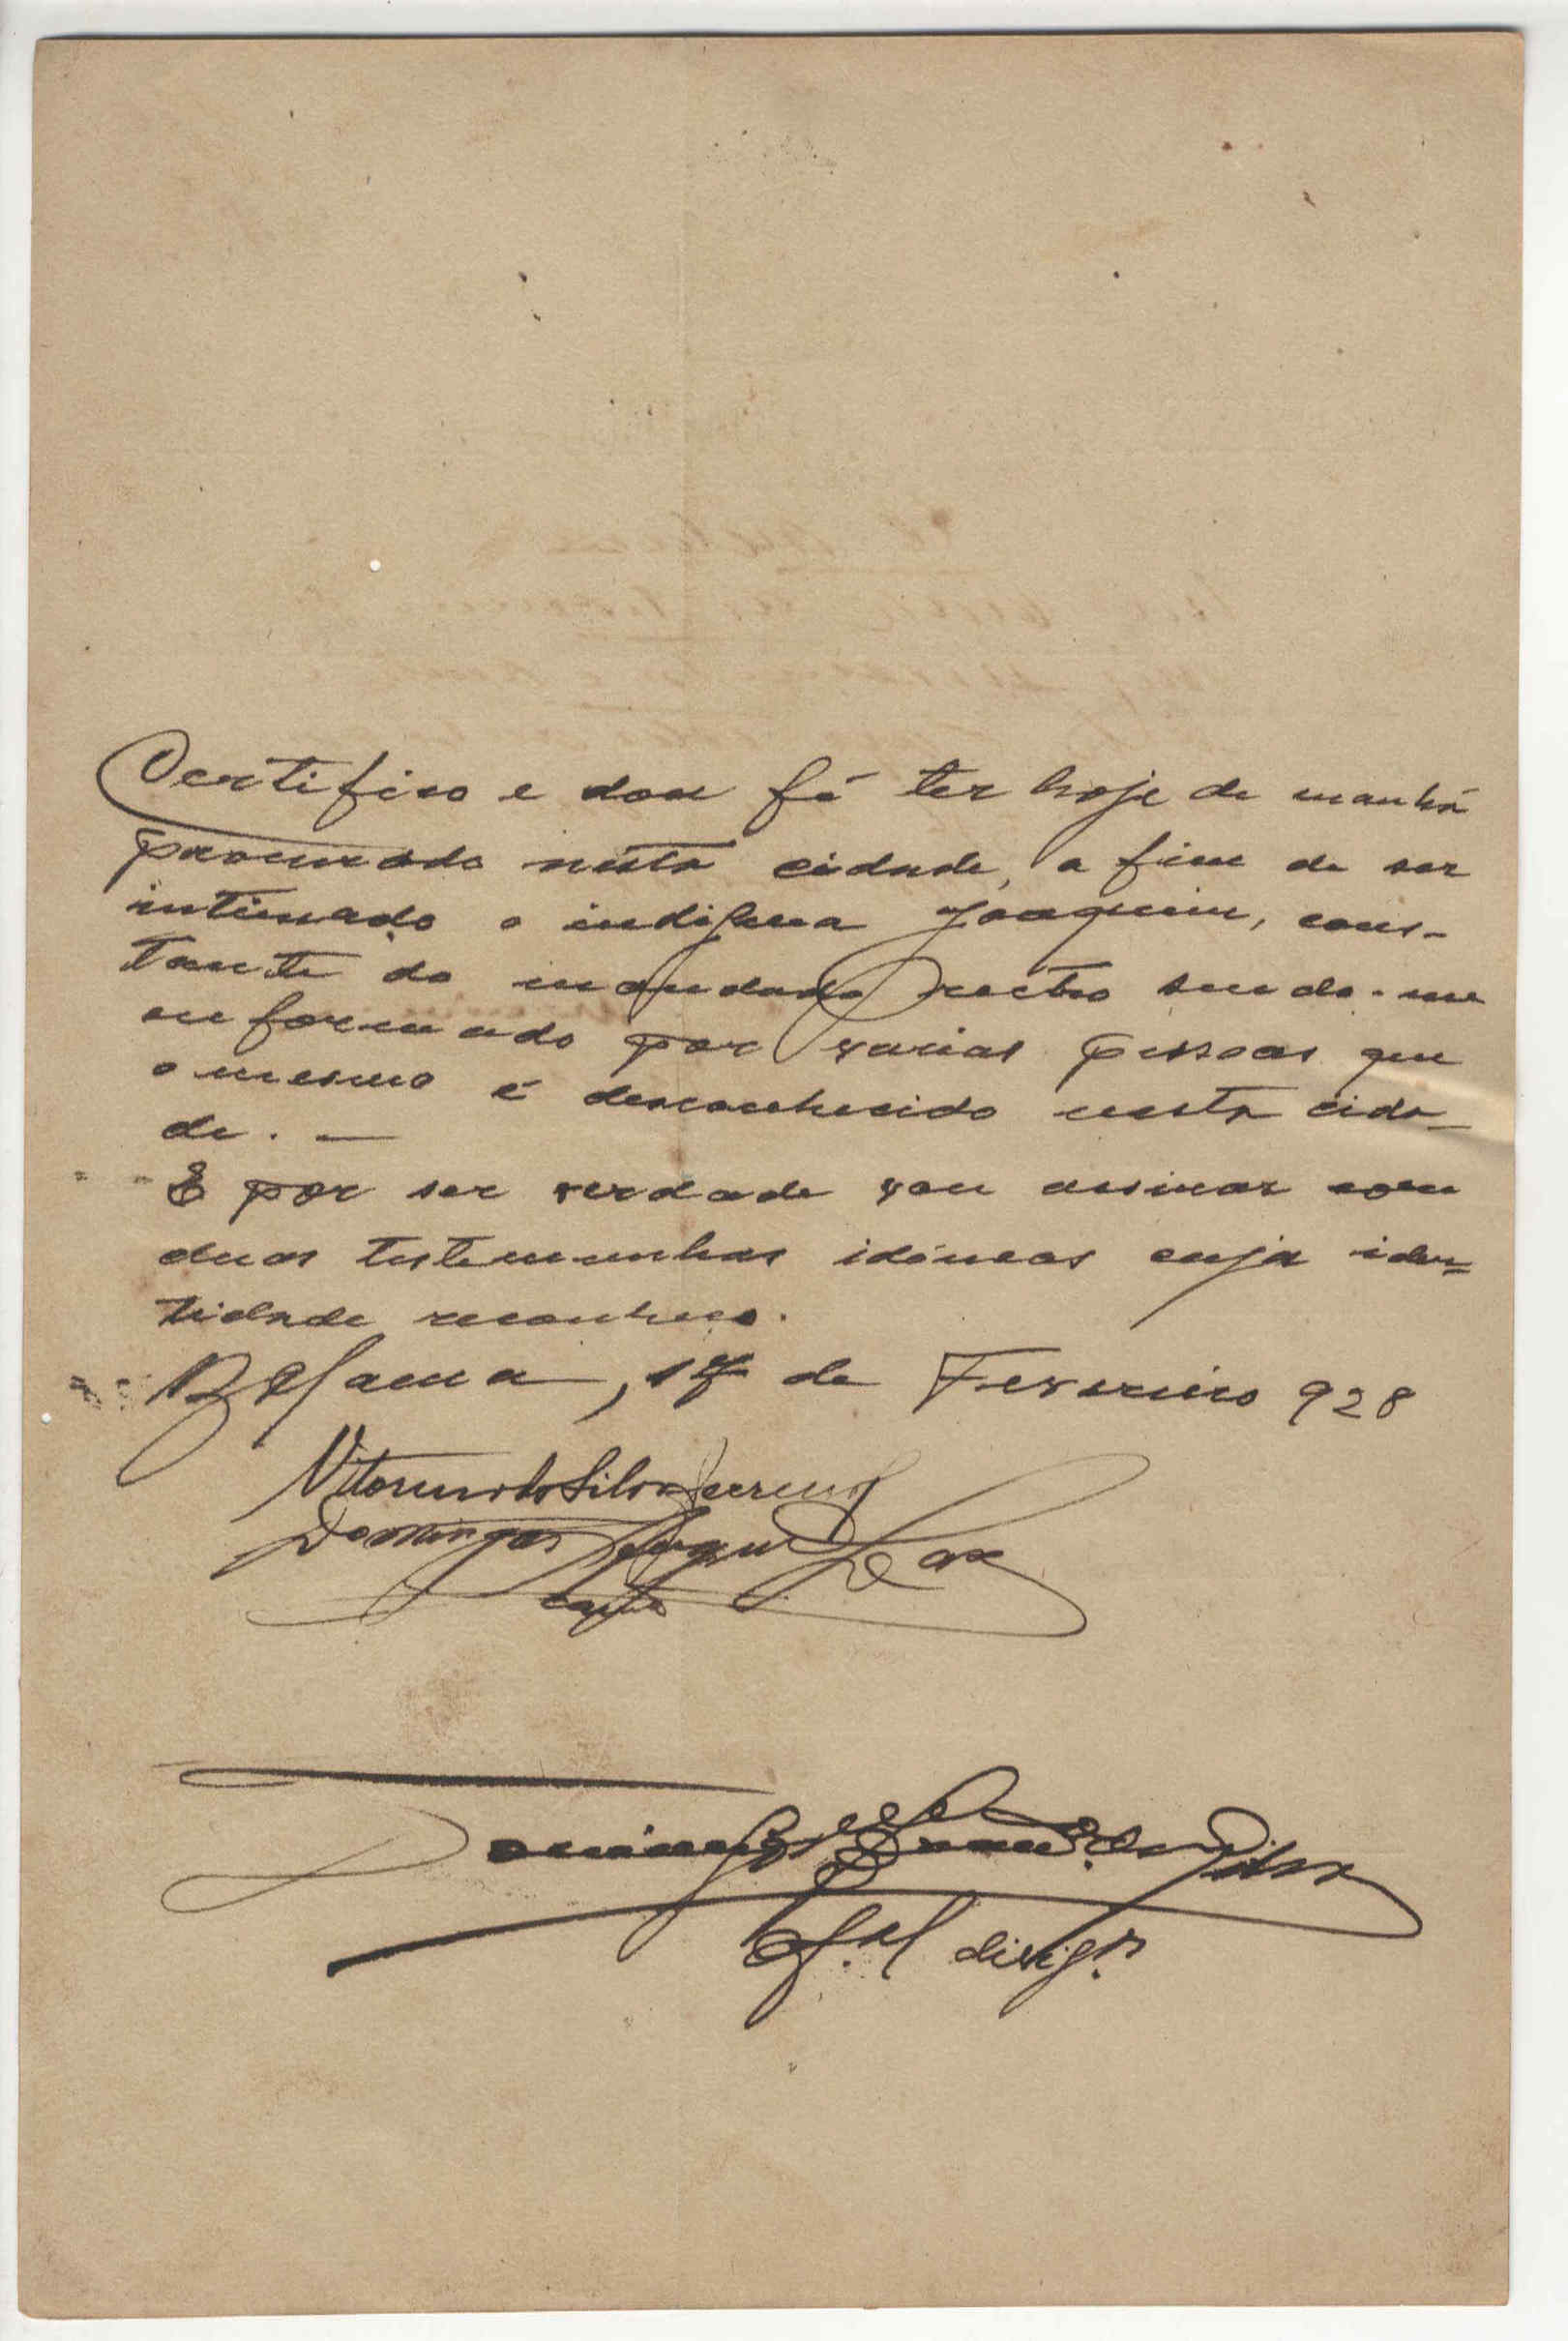 Certifico e dou fé ter hoje de manhã
procurado nesta cidade, a fim de ser
intimado o indigena Joaquim, cons-
tante do mandado rectro sendo-me
enformado por varias pessoas que
o mesmo é desconhecido nesta cida-
de. —
E por ser verdade vou assinar com
duas testemunhas idóneas cuja iden=
tidade reconheço.
Bolama, 17 de Fevereiro 928
Vitorino da Silva
Domingos Vaz
Domingos da Silva